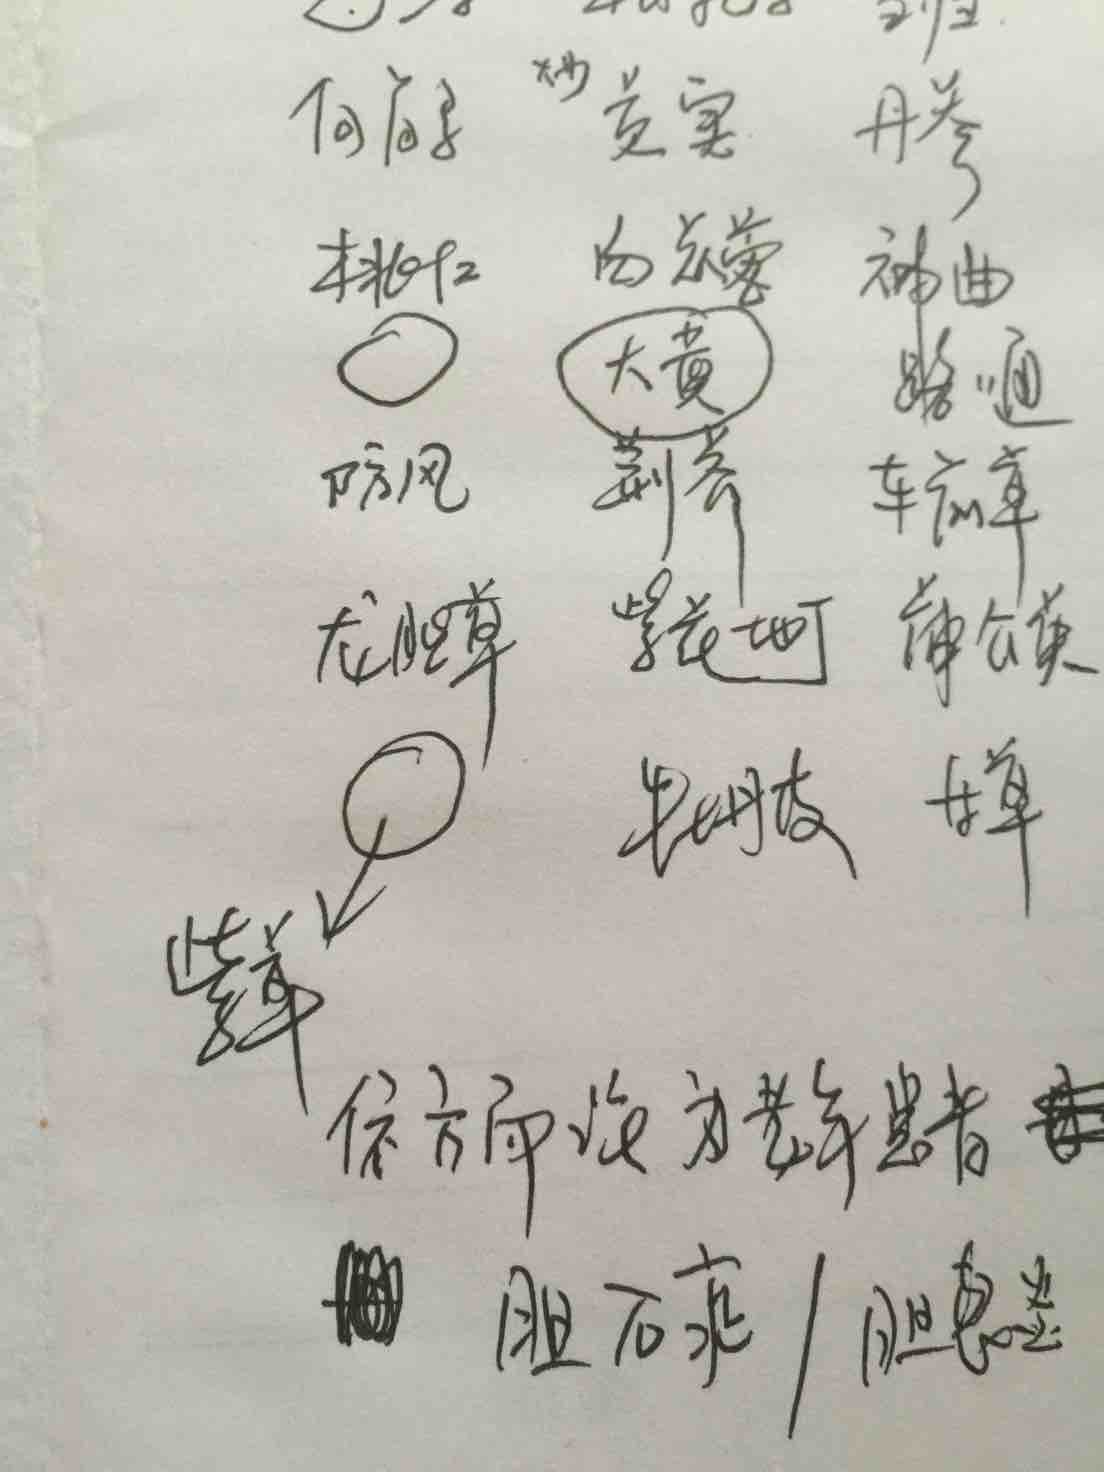 何首乌 炒芡实 丹参
桃仁 肉苁蓉 神曲
大黄 路路通
防风 荆芥 车前草
龙胆草 紫花地丁 蒲公英
牡丹皮 甘草
紫草
依方所淡为老年患者
胆石症 / 胆息差